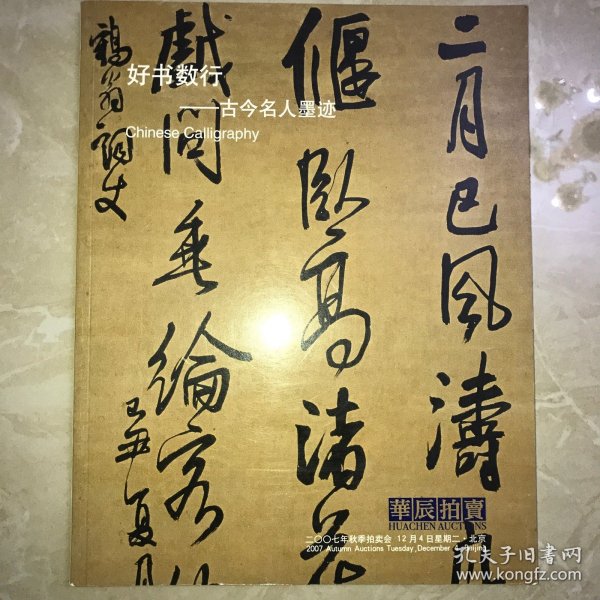 二月已风濤
偃卧高渚
戲問垂綸客
鶴翁詞丈
夏月
好书数行
——古今名人墨迹
Chinese Calligraphy
華辰拍賣
HUACHEN AUCTIONS
二〇〇七年秋季拍卖会 12月4日星期二·北京
2007 Autumn Auctions Tuesday, December 4, Beijing
孔夫子旧书网
www.kongfz.com